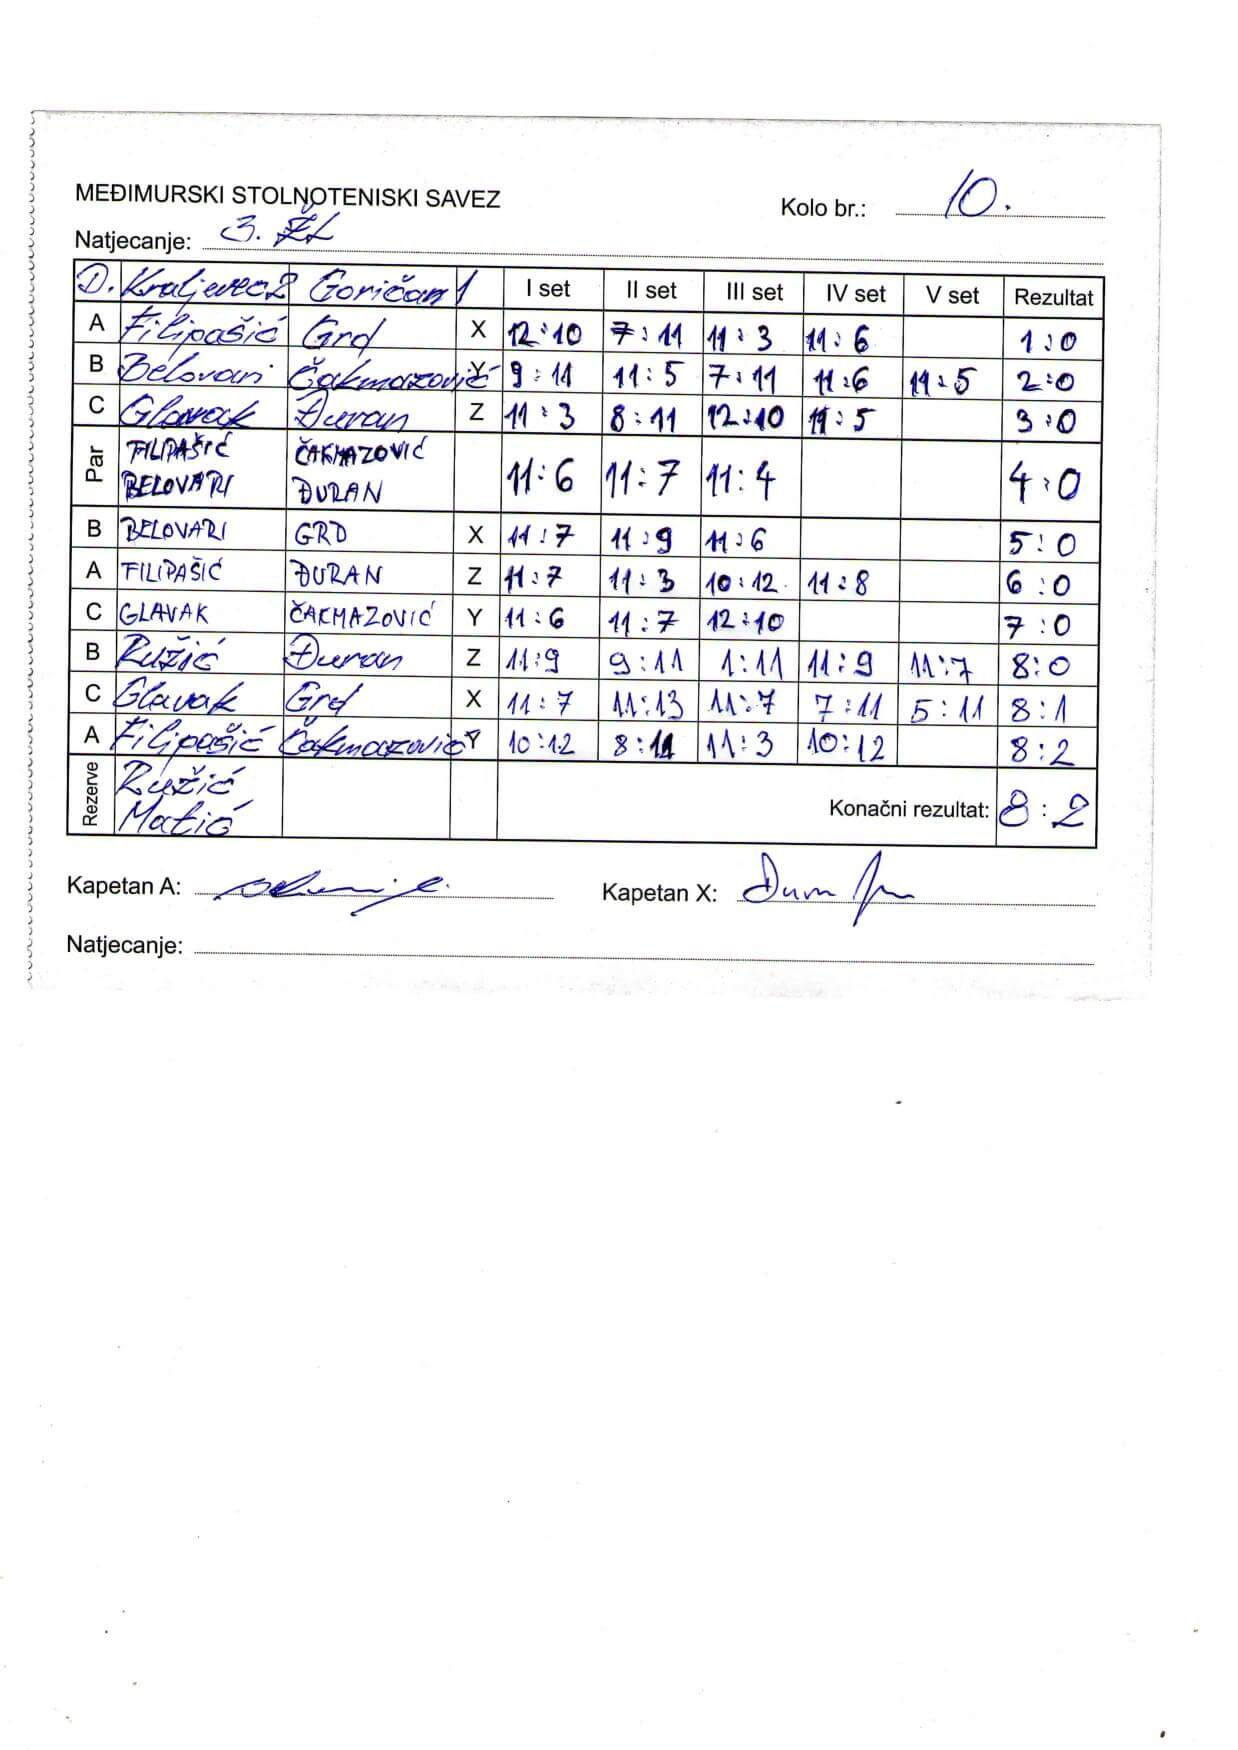 MEĐIMURSKI STOLNOTENISKI SAVEZ
Kolo br.: 10.
Natjecanje: 3. ŽL
D. Kraljevec 2 Goričan 1 I set II set III set IV set V set Rezultat
A Filipašić Grd X 12:10 7:11 11:3 11:6 1:0
B Belovari Čakmazović Y 9:11 11:5 7:11 11:6 11:5 2:0
C Glavak Đuran Z 11:3 8:11 12:10 11:5 3:0
Par FILIPAŠIĆ ČAKMAZOVIĆ 11:6 11:7 11:4 4:0
BELOVARI ĐURAN
B BELOVARI GRD X 11:7 11:9 11:6 5:0
A FILIPAŠIĆ ĐURAN Z 11:7 11:3 10:12 11:8 6:0
C GLAVAK ČAKMAZOVIĆ Y 11:6 11:7 12:10 7:0
B Ružić Đuran Z 11:9 9:11 1:11 11:9 11:7 8:0
C Glavak Grd X 11:7 11:13 11:7 7:11 5:11 8:1
A Filipašić Čakmazović Y 10:12 8:11 11:3 10:12 8:2
Rezerve Ružić
Matić
Konačni rezultat: 8:2
Kapetan A: Kapetan X:
Natjecanje: